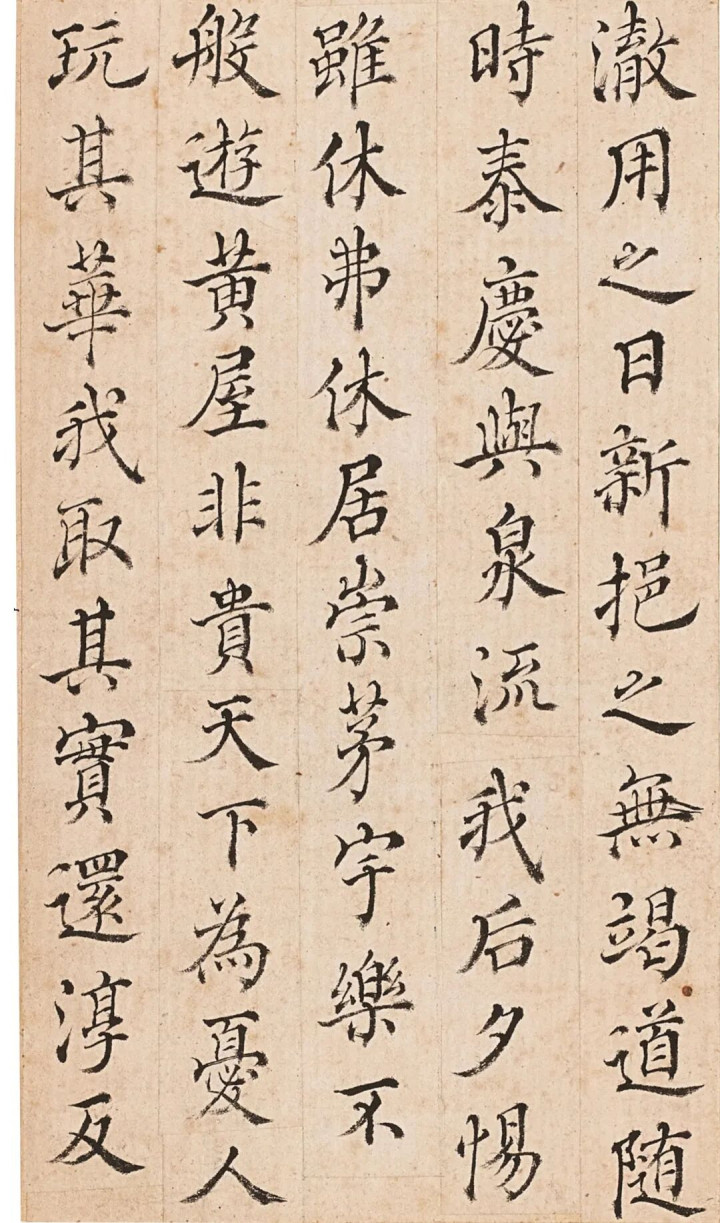 澈用之日新挹之無竭道隨
時泰慶與泉流我后夕惕
雖休弗休居崇茅宇樂不
般遊黃屋非貴天下為憂人
玩其華我取其實還淳反